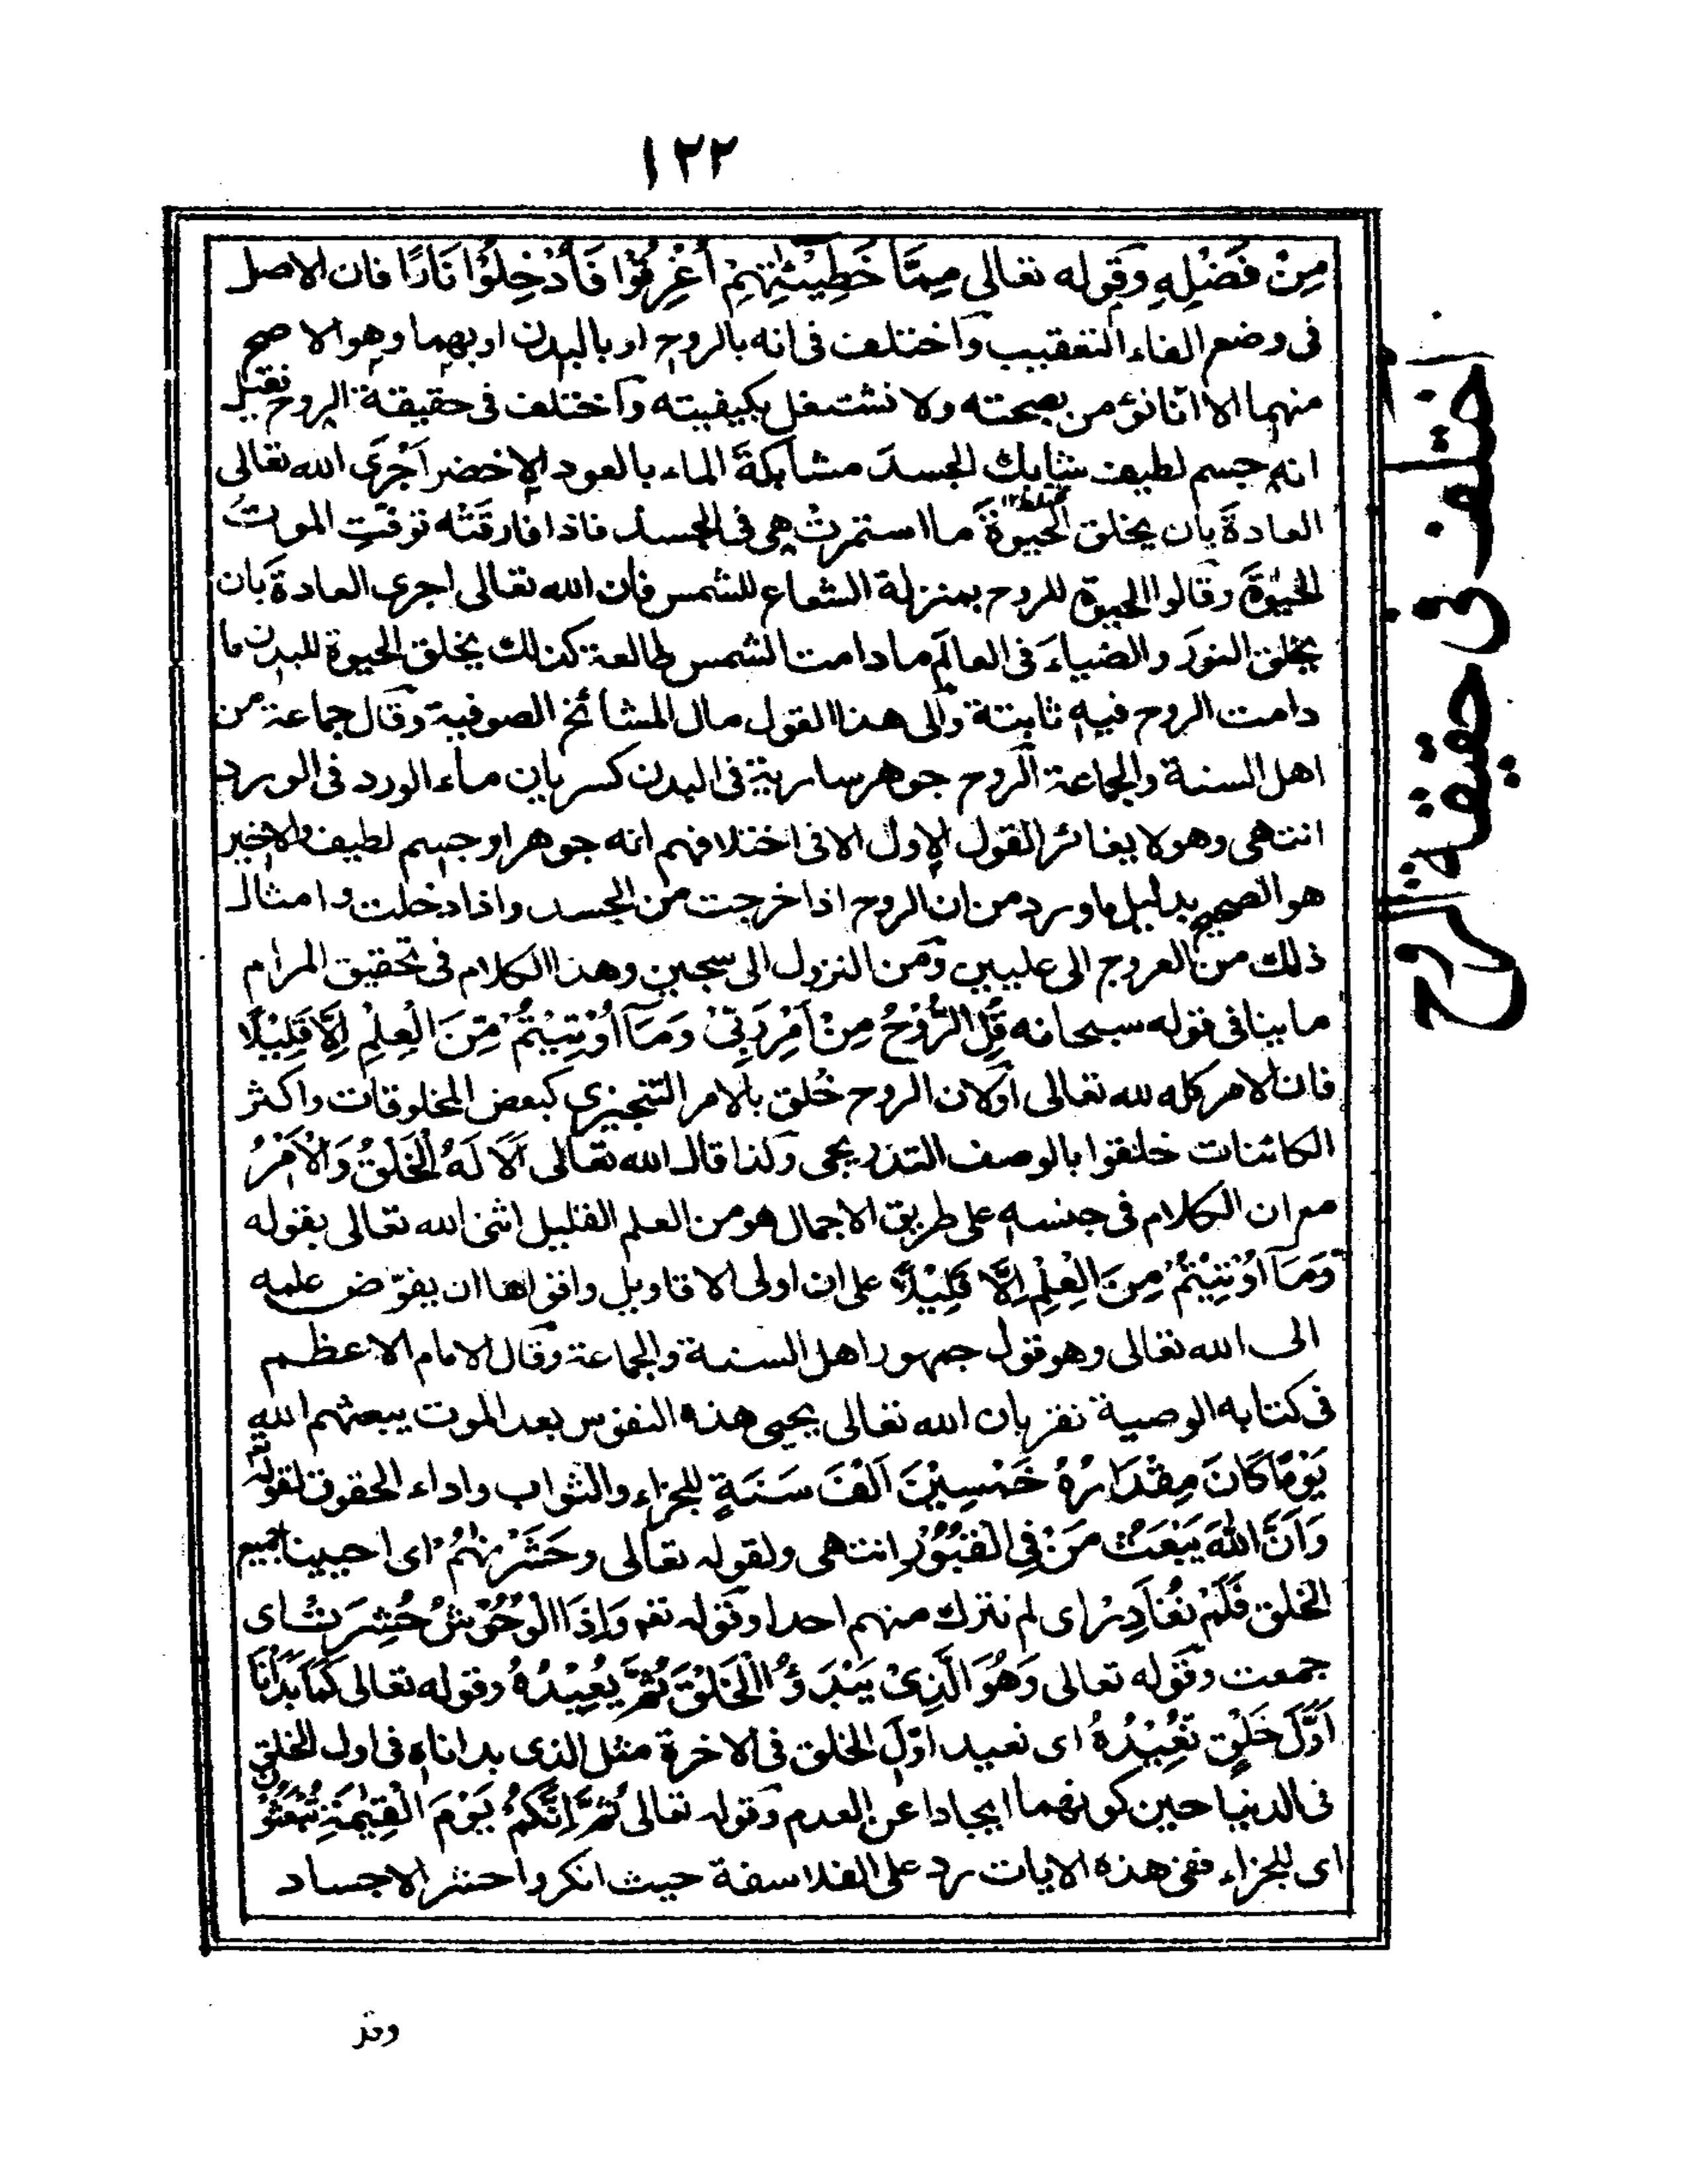 ١٢٢
مِنْ فَضْلِهٖ وقوله تعالى مِمَّا خَطِيْٓـٰٔتِهِمْ اُغْرِقُوْا فَاُدْخِلُوْا نَارًا فان الاصل
فى وضع الفاء التعقيب واختلف فى انه بالروح او بالبدن او بهما وهو الاصح
منهما الا انا نؤمن بصحته ولا نشتغل بكيفيته واختلف فى حقيقة الروح فقيل
انه جسم لطيف شابك الجسدَ مشابكةَ الماء بالعود الاخضر اَجْرَى الله تعالى
العادةَ بان يخلق الحيوةَ ما استمرتْ هى فى الجسد فاذا فارقَتْه توفتِ الموتُ
الحيٰوةَ وقالوا الحيوة للروح بمنزلة الشعاع للشمس فان الله تعالى اجرى العادة بان
يخلق النورَ والضياءَ فى العالَم ما دامت الشمس طالعة كذلك يخلق الحيوة للبدن ما
دامت الروح فيه ثابتة والى هذا القول مال المشائخ الصوفية وقال جماعة من
اهل السنة والجماعة الروح جوهر سارية فى البدن كسريان ماء الورد فى الورد
انتهى وهو لا يغائر القول الاول الا فى اختلافهم انه جوهر او جسم لطيف والاخير
هو الصحيح بدليل ما ورد من ان الروح اذا خرجت من الجسد واذا دخلت وامثال
ذلك من العروج الى عليين ومن النزول الى سجين وهذا الكلام فى تحقيق المرام
ما ينافى قوله سبحانه قُلِ الرُّوْحُ مِنْ اَمْرِ رَبِّىْ وَمَآ اُوْتِيْتُمْ مِّنَ الْعِلْمِ اِلَّا قَلِيْلًا
فان الامر كله لله تعالى اولان الروح خُلق بالامر التنجيزى كبعض المخلوقات واكثر
الكائنات خلقوا بالوصف التدريجى ولذا قال الله تعالى اَلَا لَهُ الْخَلْقُ وَالْاَمْرُ
مع ان الكلام فى جنسه على طريق الاجمال هو من العلم القليل اثنى الله تعالى بقوله
وَمَآ اُوْتِيْتُمْ مِنَ الْعِلْمِ اِلَّا قَلِيْلًا على ان اولى الاقاويل واقواها ان يفوّض علمه
الى الله تعالى وهو قول جمهور اهل السنة والجماعة وقال الامام الاعظم
فى كتابه الوصية نقر بان الله تعالى يحيى هذه النفوس بعد الموت يبعثهم الله
يَوْمًا كَانَ مِقْدَارُهٗ خَمْسِيْنَ اَلْفَ سَنَةٍ للجزاء والثواب واداء الحقوق لقوله تع
وَاَنَّ اللّٰهَ يَبْعَثُ مَنْ فِى الْقُبُوْرِ انتهى ولقوله تعالى وحَشَرْنٰهُمْ اى احيينا جميع
الخلق فَلَمْ نُغَادِرْ اى لم نترك منهم احدا وقوله تع وَاِذَا الْوُحُوْشُ حُشِرَتْ اى
جمعت وقوله تعالى وَهُوَ الَّذِىْ يَبْدَؤُا الْخَلْقَ ثُمَّ يُعِيْدُهٗ وقوله تعالى كَمَا بَدَاْنَا
اَوَّلَ خَلْقٍ نُّعِيْدُهٗ اى نعيد اوّل الخلق فى الاخرة مثل الذى بداناه فى اول الخلق
فى الدنيا حين كونهما ايجادا عن العدم وقوله تعالى ثُمَّ اِنَّكُمْ يَوْمَ الْقِيٰمَةِ تُبْعَثُوْنَ
اى للجزاء ففى هذه الايات رد على الفلاسفة حيث انكروا حشر الاجساد
اختلف فى حقيقة الروح